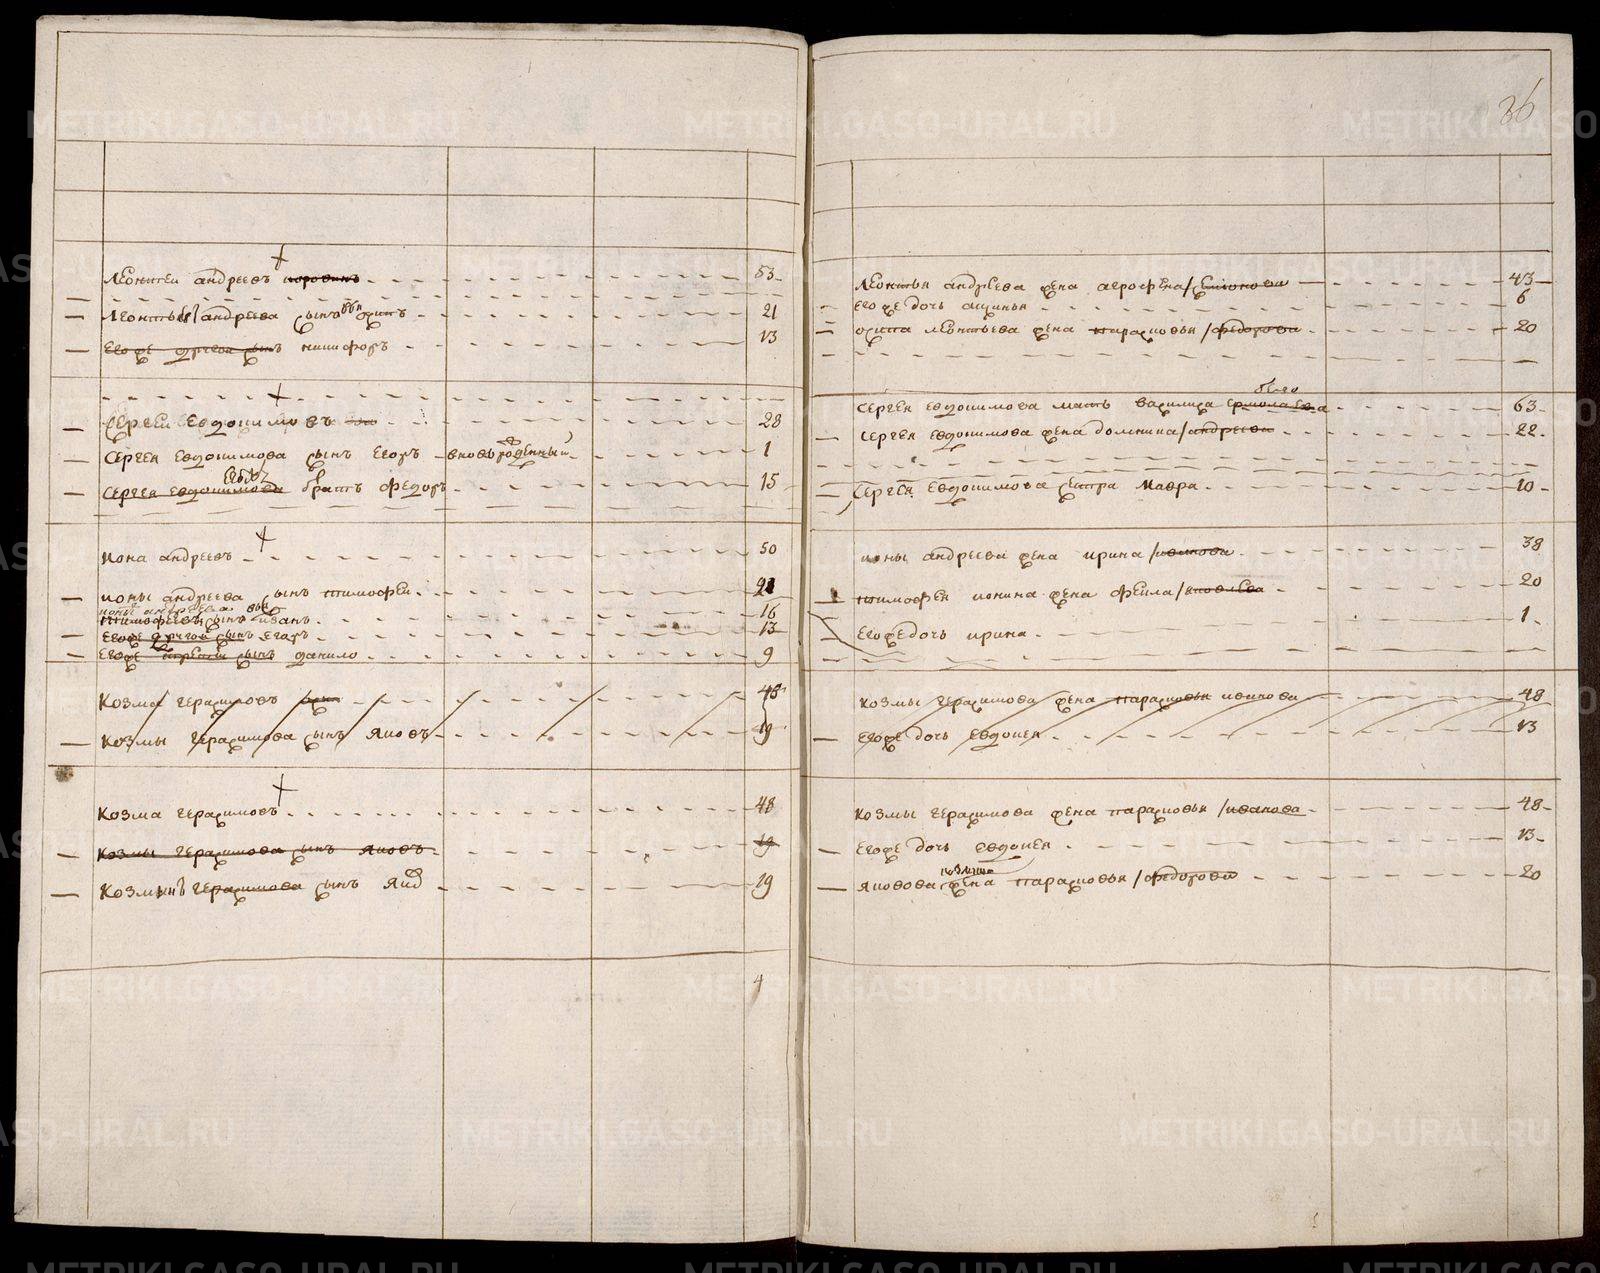 36
Леонтеи андреевъ коровинъ 53
Леонтья андреева сынъ осипъ 21
Егоже другои сынъ никифоръ 13
Сергеи Евдокимовъ 28
Сергея Евдокимова сынъ Егоръ вновь рожденныи 1
Сергея Евдокимова братъ Федоръ 15
Иона андреевъ 50
ионы андреева сынъ тимофеи 21
ионы андреева
тимофеевъ сынъ иванъ 16
Егоже другои сынъ Егоръ 13
Егоже третеи сынъ данило 9
Козма герасимовъ 48
Козмы герасимова сынъ яковъ 19
Козма герасимовъ 48
Козмы герасимова сынъ яковъ 19
Козминъ герасимова сынъ яко 19
4
Леонтья андреева жена агрофена / семионова 43
Егоже дочь аксинья 6
осипа леонтьева жена парасковья / федорова 20
Сергея Евдокимова мать василиса Ермолаева 63
Сергея Евдокимова жена домнина / андреева 22
Сергея Евдокимова сестра мавра 10
ионы андреева жена ирина / иванова 38
тимофея ионина жена фекла / яковлева 20
Егоже дочь ирина 1
Козмы герасимова жена парасковья иванова 48
Егоже дочь Евдокея 13
Козмы герасимова жена парасковья / иванова 48
Егоже дочь Евдокея 13
якова козмина жена парасковья / федорова 20
METRIKI.GASO-URAL.RU